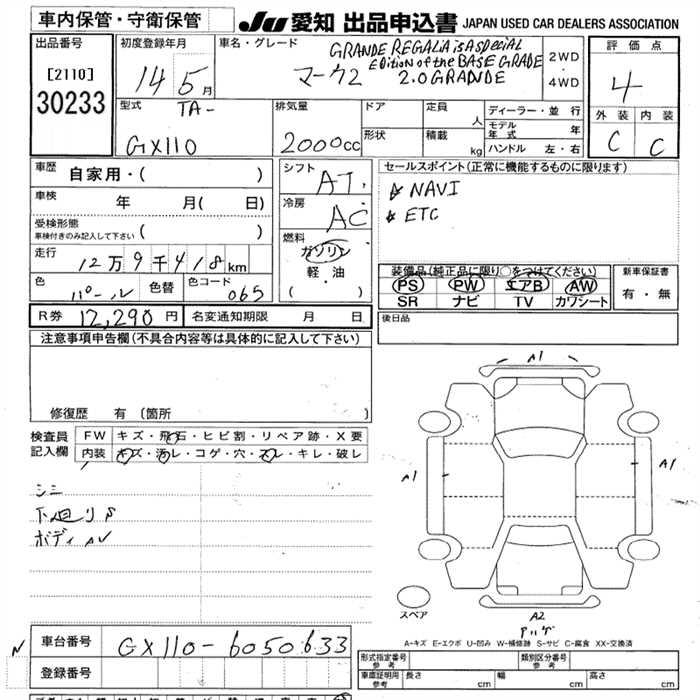 車内保管・守衛保管
JU 愛知 出品申込書 JAPAN USED CAR DEALERS ASSOCIATION
出品番号
[2110]
30233
初度登録年月
14 5 月
車名・グレード
GRANDE REGALIA is A SPECIAL
Edition of the BASE GRADE
マークⅡ 2.0 GRANDE
2WD
・
4WD
評価点
4
外装 内装
C C
型式
TA-
GX110
排気量
2000cc
ドア
形状
定員 人
積載 kg
ディーラー・並行
モデル年式 年
ハンドル 左・右
車歴 自家用・( )
車検 年 月( 日)
受検形態
車検付きのみ記入して下さい ( )
走行 12万9千418km
色 パール 色替 色コード 065
シフト AT
冷房 AC
燃料
ガソリン
軽・油
( ・ )
セールスポイント(正常に機能するものに限ります)
☆ NAVI
☆ ETC
装備品(純正品に限り○をつけてください)
PS PW エアB AW
SR ナビ TV カワシート
新車保証書
有・無
R券 12,290円 名変通知期限 月 日
後日品
注意事項申告欄(不具合内容等は具体的に記入して下さい)
修復歴 有 (箇所 )
検査員記入欄
FW キズ・飛石・ヒビ割・リペア跡・X要
内装 キズ・汚レ・コゲ・穴・スレ・キレ・破レ
シミ
下廻りS
ボディAV
A1
A1
A1
スペア
A2
アハゲ
A-キズ E-エクボ U-凹み W-補修跡 S-サビ C-腐食 XX-交換済
N
車台番号 GX110-6050633
登録番号
形式指定番号
参考
類別区分番号
参考
車庫証明用
参考
長さ cm 幅 cm 高さ cm